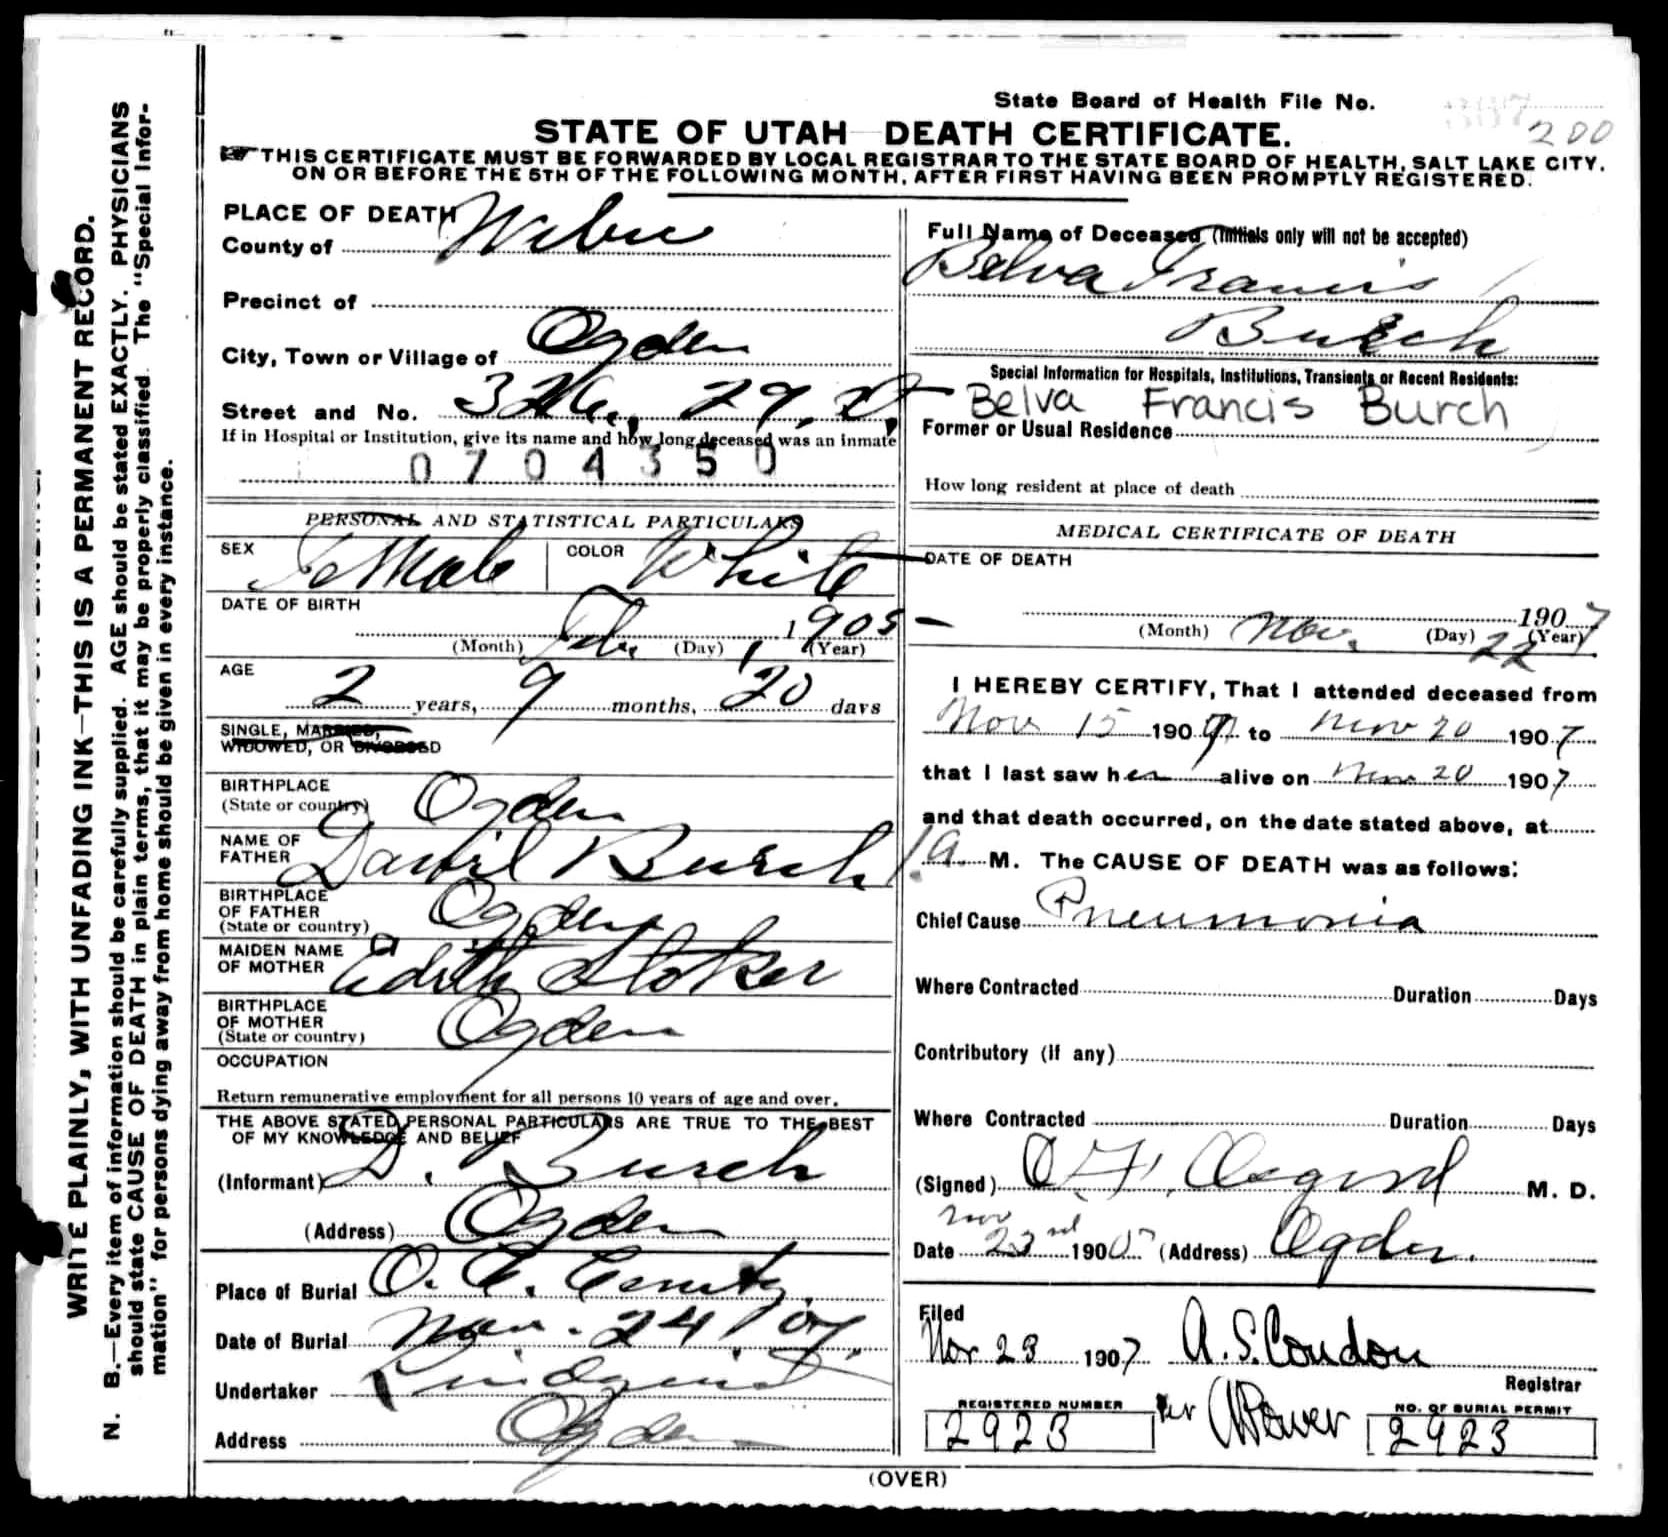 State Board of Health File No.
200
STATE OF UTAH DEATH CERTIFICATE.
THIS CERTIFICATE MUST BE FORWARDED BY LOCAL REGISTRAR TO THE STATE BOARD OF HEALTH, SALT LAKE CITY,
ON OR BEFORE THE 5TH OF THE FOLLOWING MONTH, AFTER FIRST HAVING BEEN PROMPTLY REGISTERED.
WRITE PLAINLY, WITH UNFADING INK—THIS IS A PERMANENT RECORD.
N. B.—Every item of information should be carefully supplied. AGE should be stated EXACTLY. PHYSICIANS
should state CAUSE OF DEATH in plain terms, that it may be properly classified. The "Special Infor-
mation" for persons dying away from home should be given in every instance.
PLACE OF DEATH
County of Weber
Precinct of
City, Town or Village of Ogden
Street and No. 326, 29, St
If in Hospital or Institution, give its name and how long deceased was an inmate
0704350
PERSONAL AND STATISTICAL PARTICULARS
SEX Female COLOR White
DATE OF BIRTH
(Month) Feb (Day) 1 1905 (Year)
AGE
2 years, 9 months, 20 days
SINGLE, MARRIED,
WIDOWED, OR DIVORCED
BIRTHPLACE
(State or country) Ogden
NAME OF
FATHER David Burch
BIRTHPLACE
OF FATHER
(State or country) Ogden
MAIDEN NAME
OF MOTHER Edith Stoker
BIRTHPLACE
OF MOTHER
(State or country) Ogden
OCCUPATION
Return remunerative employment for all persons 10 years of age and over.
THE ABOVE STATED PERSONAL PARTICULARS ARE TRUE TO THE BEST
OF MY KNOWLEDGE AND BELIEF
(Informant) D. Burch
(Address) Ogden
Place of Burial O. C. Cemty.
Date of Burial Nov. 24 / 07
Undertaker Lindquist
Address Ogden
Full Name of Deceased (Initials only will not be accepted)
Belva Francis
Burch
Special Information for Hospitals, Institutions, Transients or Recent Residents:
Belva Francis Burch
Former or Usual Residence
How long resident at place of death
MEDICAL CERTIFICATE OF DEATH
DATE OF DEATH
1907
(Month) Nov. (Day) 22 (Year)
I HEREBY CERTIFY, That I attended deceased from
Nov 15 1907 to Nov 20 1907
that I last saw her alive on Nov 20 1907
and that death occurred, on the date stated above, at
1 a M. The CAUSE OF DEATH was as follows:
Chief Cause Pneumonia
Where Contracted Duration Days
Contributory (If any)
Where Contracted Duration Days
(Signed) M. D.
Nov
Date 23rd 190 (Address) Ogden.
Filed
Nov 23 1907 A. S. Condon
Registrar
REGISTERED NUMBER
2923
per
NO. OF BURIAL PERMIT
2923
(OVER)